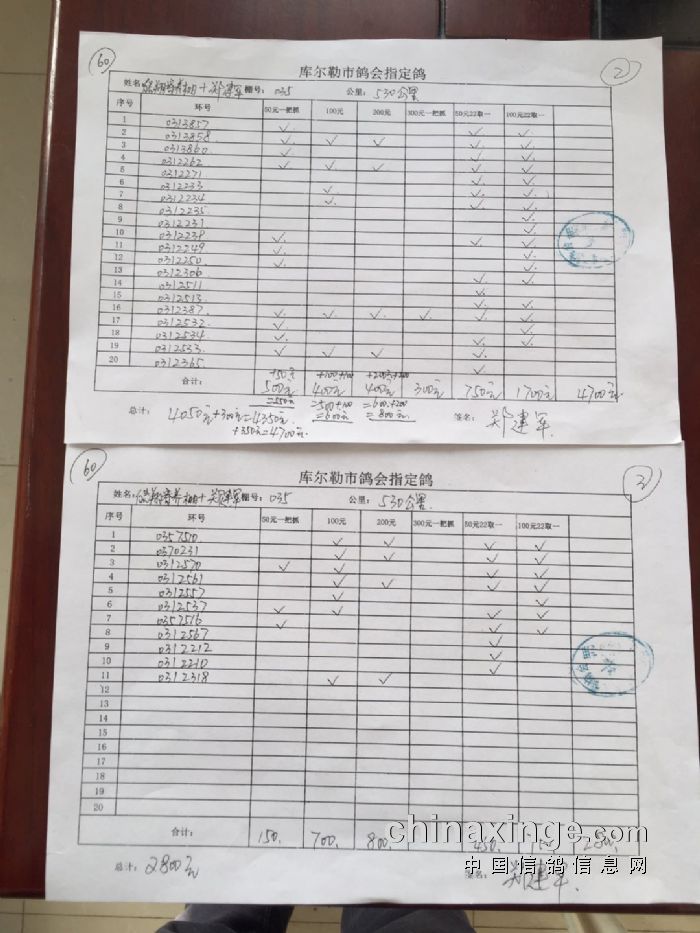 60
2
库尔勒市鸽会指定鸽
姓名: 棚号: 035 公里: 530公里
序号 环号 50元一把抓 100元 200元 300元一把抓 50元22取一 100元22取一
1 0313857 ✓
2 0313858 ✓ ✓ ✓ ✓ ✓
3 0313860 ✓ ✓ ✓
4 0312262 ✓ ✓ ✓ ✓ ✓
5 0312271 ✓ ✓
6 0312233 ✓ ✓ ✓
7 0312234 ✓ ✓ ✓
8 0312235 ✓ ✓
9 0312231 ✓
10 0312239 ✓ ✓
11 0312249 ✓ ✓ ✓
12 0312250 ✓ ✓
13 0312306 ✓
14 0312511 ✓ ✓
15 0312513 ✓
16 0312387 ✓ ✓ ✓ ✓ ✓ ✓
17 0312532 ✓ ✓
18 0312534 ✓ ✓
19 0312533 ✓ ✓ ✓ ✓ ✓
20 0312365 ✓
+50元 +100+100 +200元+200
合计: 500元 400元 400元 300元 750元 1700元 4700元
=550元 =500+100 =600+200
=600元 =800元
总计: 4050元+300元=4350元
+350元=4700元
签名: 郑建军
60
3
库尔勒市鸽会指定鸽
姓名: 棚号: 035 公里: 530公里
序号 环号 50元一把抓 100元 200元 300元一把抓 50元22取一 100元22取一
1 0357510 ✓ ✓ ✓ ✓
2 0370231 ✓ ✓ ✓ ✓
3 0312570 ✓ ✓ ✓ ✓
4 0312561 ✓ ✓ ✓ ✓
5 0312557 ✓ ✓
6 0312537 ✓ ✓ ✓
7 0357516 ✓ ✓ ✓
8 0312567 ✓
9 0312212 ✓
10 0312210 ✓
11 0312318 ✓ ✓
12
13
14
15
16
17
18
19
20
合计: 150. 700. 800. 450.
总计: 2800元
签名: 郑建军
chinaxinge.com
中国信鸽信息网